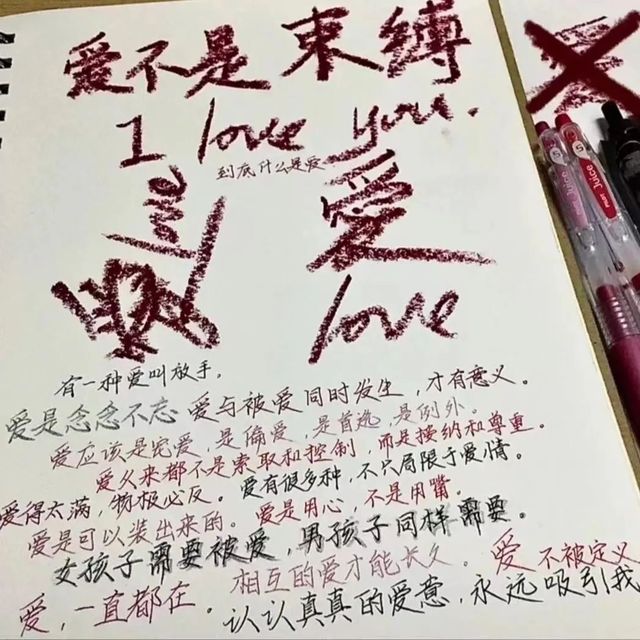 爱不是束缚
I love you.
到底什么是爱
爱
love
有一种爱叫放手。
爱与被爱同时发生，才有意义。
爱是念念不忘
爱应该是宠爱，是偏爱，是首选，是例外。
爱久来都不是索取和控制，而是接纳和尊重。
爱得太满，物极必反。爱有很多种，不只局限于爱情。
爱是可以装出来的。爱是用心，不是用嘴。
女孩子需要被爱，男孩子同样需要。
相互的爱才能长久。爱不被定义
爱，一直都在。认认真真的爱意，永远吸引我
Juice
Juice